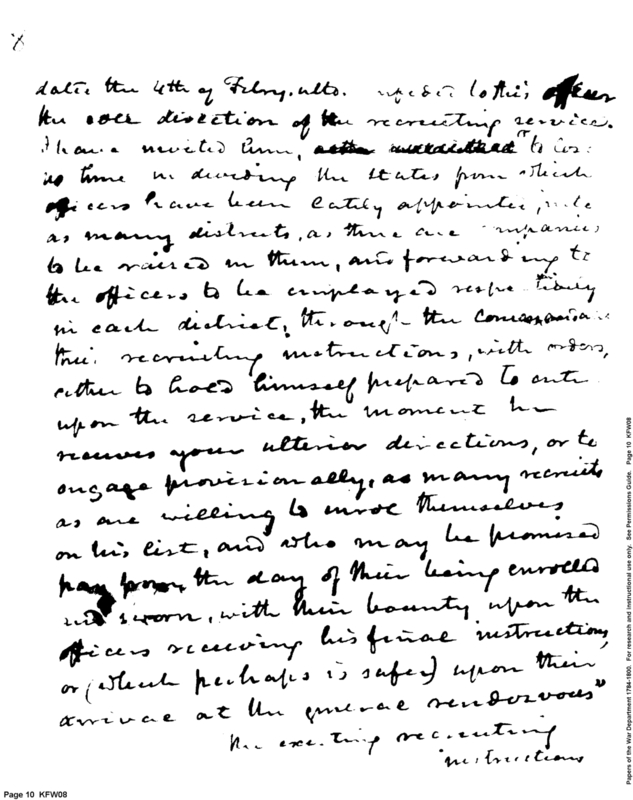 X
date the 4th of Febry. ulto. to this officer
the over direction of the recruiting service.
I have invited him, to lose
no time in dividing the states from which
officers have been lately appointed, into
as many districts, as there are companies
to be raised in them, and forwarding to
the officers to be employed respectively
in each district, through the
their recruiting instructions, with orders,
either to hold himself prepared to enter
upon the service, the moment he
receives your ulterior directions, or to
engage provisionally, as many recruits
as are willing to inrol themselves
on his list, and who may be promised
pay from the day of their being enrolled
and sworn, with their bounty upon the
officers receiving his final instructions,
or (which perhaps is safer) upon their
arrival at the general rendezvous"
The existing recruiting
instructions
Page 10 KFW08
Papers of the War Department 1784-1800. For research and instructional use only. See Permissions Guide. Page 10 KFW08